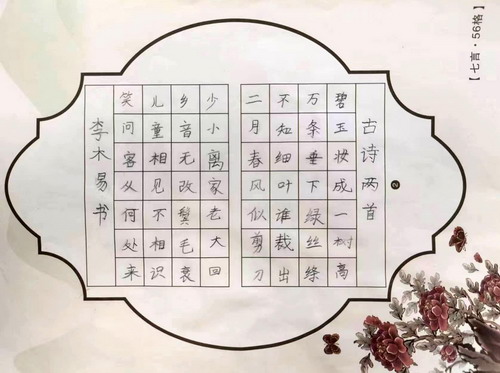 【七言·56格】
2
古诗两首
碧玉妆成一树高
万条垂下绿丝绦
不知细叶谁裁出
二月春风似剪刀
少小离家老大回
乡音无改鬓毛衰
儿童相见不相识
笑问客从何处来
李木易书